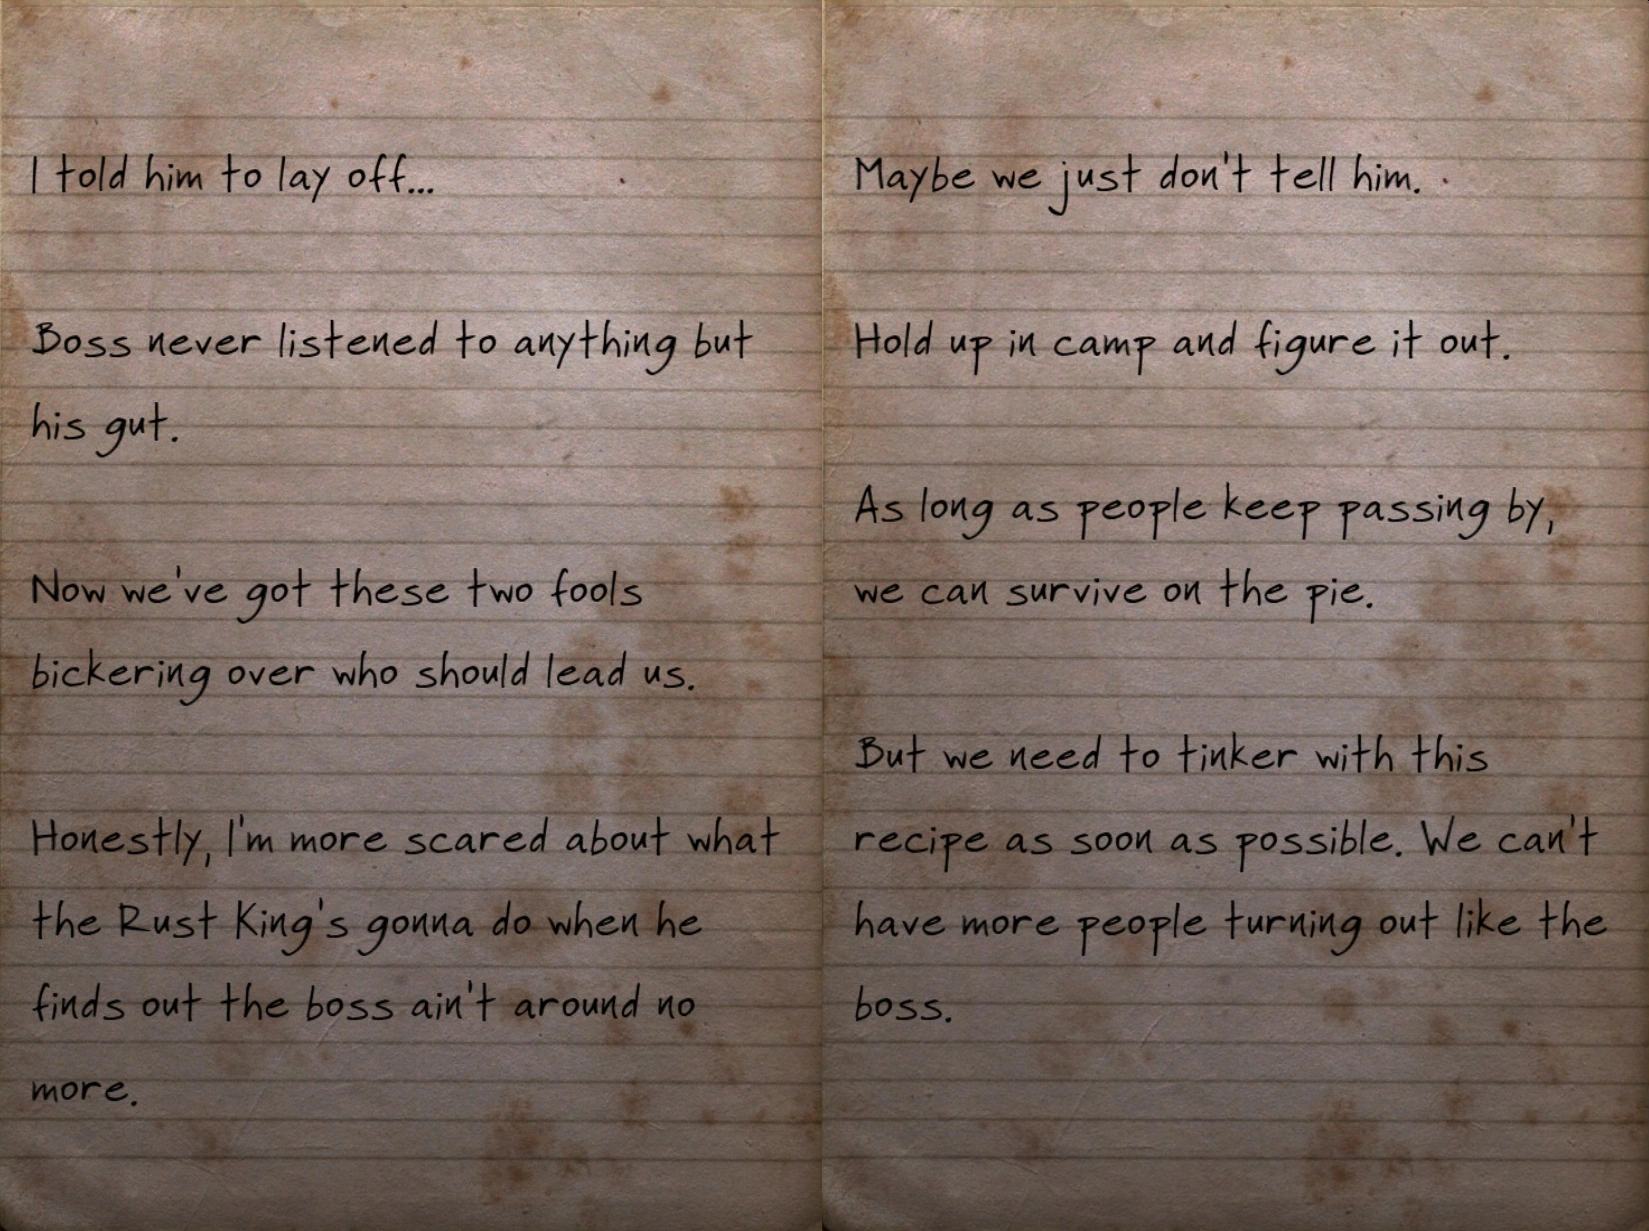 I told him to lay off...
Boss never listened to anything but
his gut.
Now we've got these two fools
bickering over who should lead us.
Honestly, I'm more scared about what
the Rust King's gonna do when he
finds out the boss ain't around no
more.
Maybe we just don't tell him.
Hold up in camp and figure it out.
As long as people keep passing by,
we can survive on the pie.
But we need to tinker with this
recipe as soon as possible. We can't
have more people turning out like the
boss.